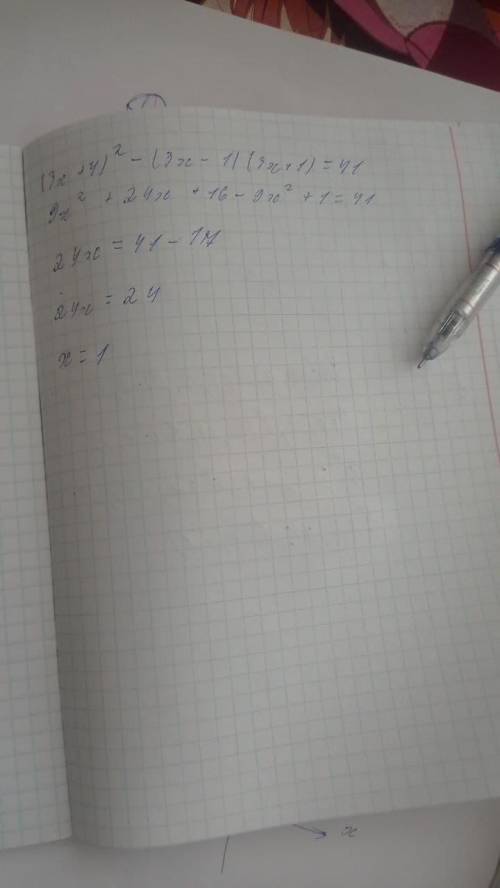 (3x+4)² - (3x - 1)(3x+1) = 41
9x² + 24x + 16 - 9x² + 1 = 41
24x = 41 - 17
24x = 24
x = 1
x